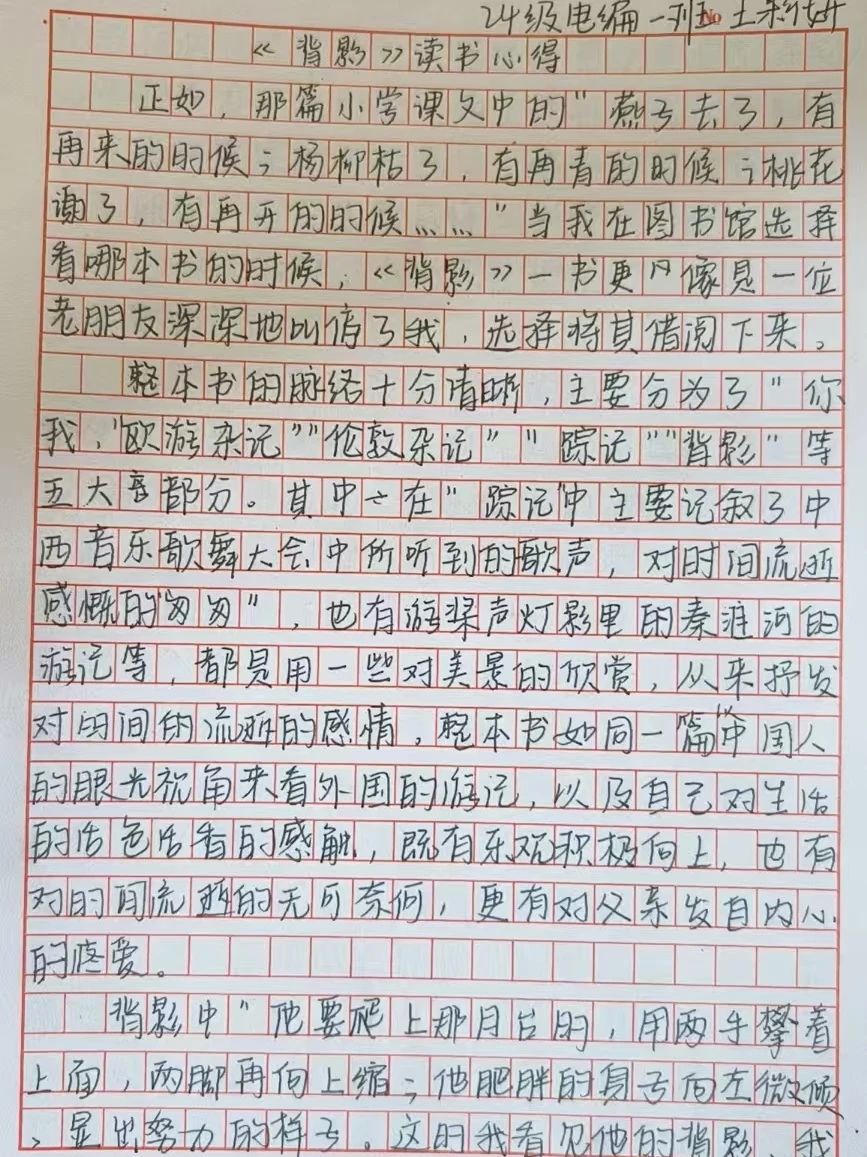 24级电编一班
No
《背影》读书心得
正如，那篇小学课文中的"燕子去了，有
再来的时候；杨柳枯了，有再青的时候；桃花
谢了，有再开的时候……"当我在图书馆选择
看哪本书的时候，《背影》一书更像是一位
老朋友深深地叫停了我，选择将其借阅下来。
整本书的脉络十分清晰，主要分为了"你
我，"欧游杂记""伦敦杂记""踪记""背影"等
五大部分。其中在"踪记"中主要记叙了中
西音乐歌舞大会中所听到的歌声，对时间流逝
感慨的"匆匆"，也有游桨声灯影里的秦淮河的
游记等，都是用一些对美景的欣赏，从来抒发
对时间的流逝的感情，整本书如同一篇以中国人
的眼光视角来看外国的游记，以及自己对生活
的活色活香的感触，既有乐观积极向上，也有
对时间流逝的无可奈何，更有对父亲发自内心
的疼爱。
背影中"他要爬上那月台时，用两手攀着
上面，两脚再向上缩；他肥胖的身子向左微倾
，显出努力的样子。这时我看见他的背影，我